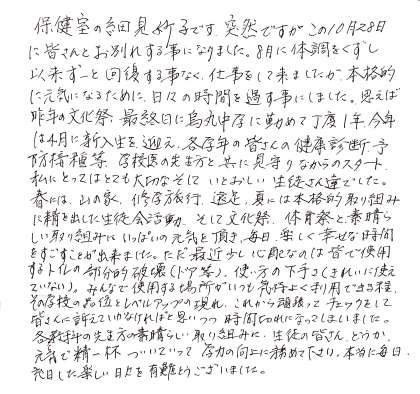 保健室の細見妙子です。突然ですがこの10月28日
に皆さんとお別れする事になりました。8月に体調をくずし
以来ずーと回復する事なく、仕事をして来ましたが、本格的
に元気になるために、日々の時間を過す事にしました。思えば
昨年の文化祭 最終日に烏丸中学に勤めて丁度1年、今年
は4月に新入生を迎え、各学年の皆さんの健康診断・予
防接種等 学校医の先生方と共に見守りながらのスタート、
私にとってはとても大切なそして いとおしい 生徒さん達でした。
春には、山の家、修学旅行、遠足、夏には本格的な取り組み
に精を出した生徒会活動、そして文化祭、体育祭と素晴ら
しい取り組みに いっぱいの元気を頂き、毎日、楽しく 幸せな時間
をすごすことが出来ました。ただ最近少し心配なのは皆で使用
するトイレの部分的破壊(ドア等)、使い方の下手さ(きれいに使え
ていない)。みんなで使用する場所がいつも気持よく利用できる程、
その学校の品位とレベルアップの現れ、これから頑張ってチェックをして
皆さんに訴えていかなければと思いつつ 時間切れになってしまいました。
各教科の先生方の素晴らしい取り組みに、生徒の皆さん、どうか、
元気で精一杯 ついていって 学力の向上に務めて下さい。本当に毎日、
充実した楽しい日々を有難うございました。